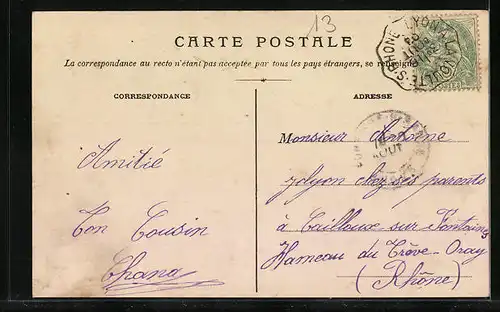 13
CARTE POSTALE
La correspondance au recto n'étant pas acceptée par tous les pays étrangers, se renseigner
CORRESPONDANCE
ADRESSE
Amitié
Ton Cousin
Monsieur Antoine
chez ses parents
à Cailloux sur Fontaines
Hameau du Trève-Oray
(Rhône)
LYON A LA VOULTE-S-RHONE
AOUT